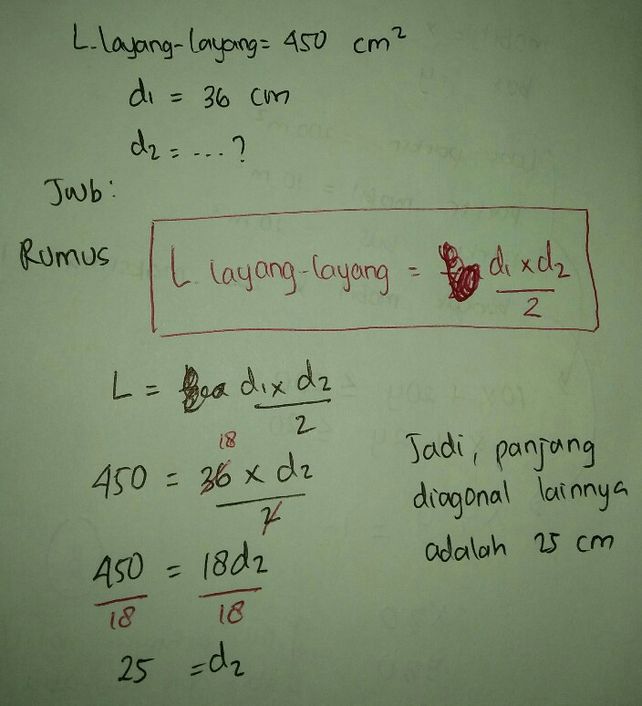 L. layang-layang = 450 cm²
d1 = 36 cm
d2 = ... ?
Jwb :
Rumus
L layang-layang = d1 x d2
2
L = d1 x d2
2
18
450 = 36 x d2
2
450 = 18d2
18 18
25 = d2
Jadi, panjang
diagonal lainnya
adalah 25 cm